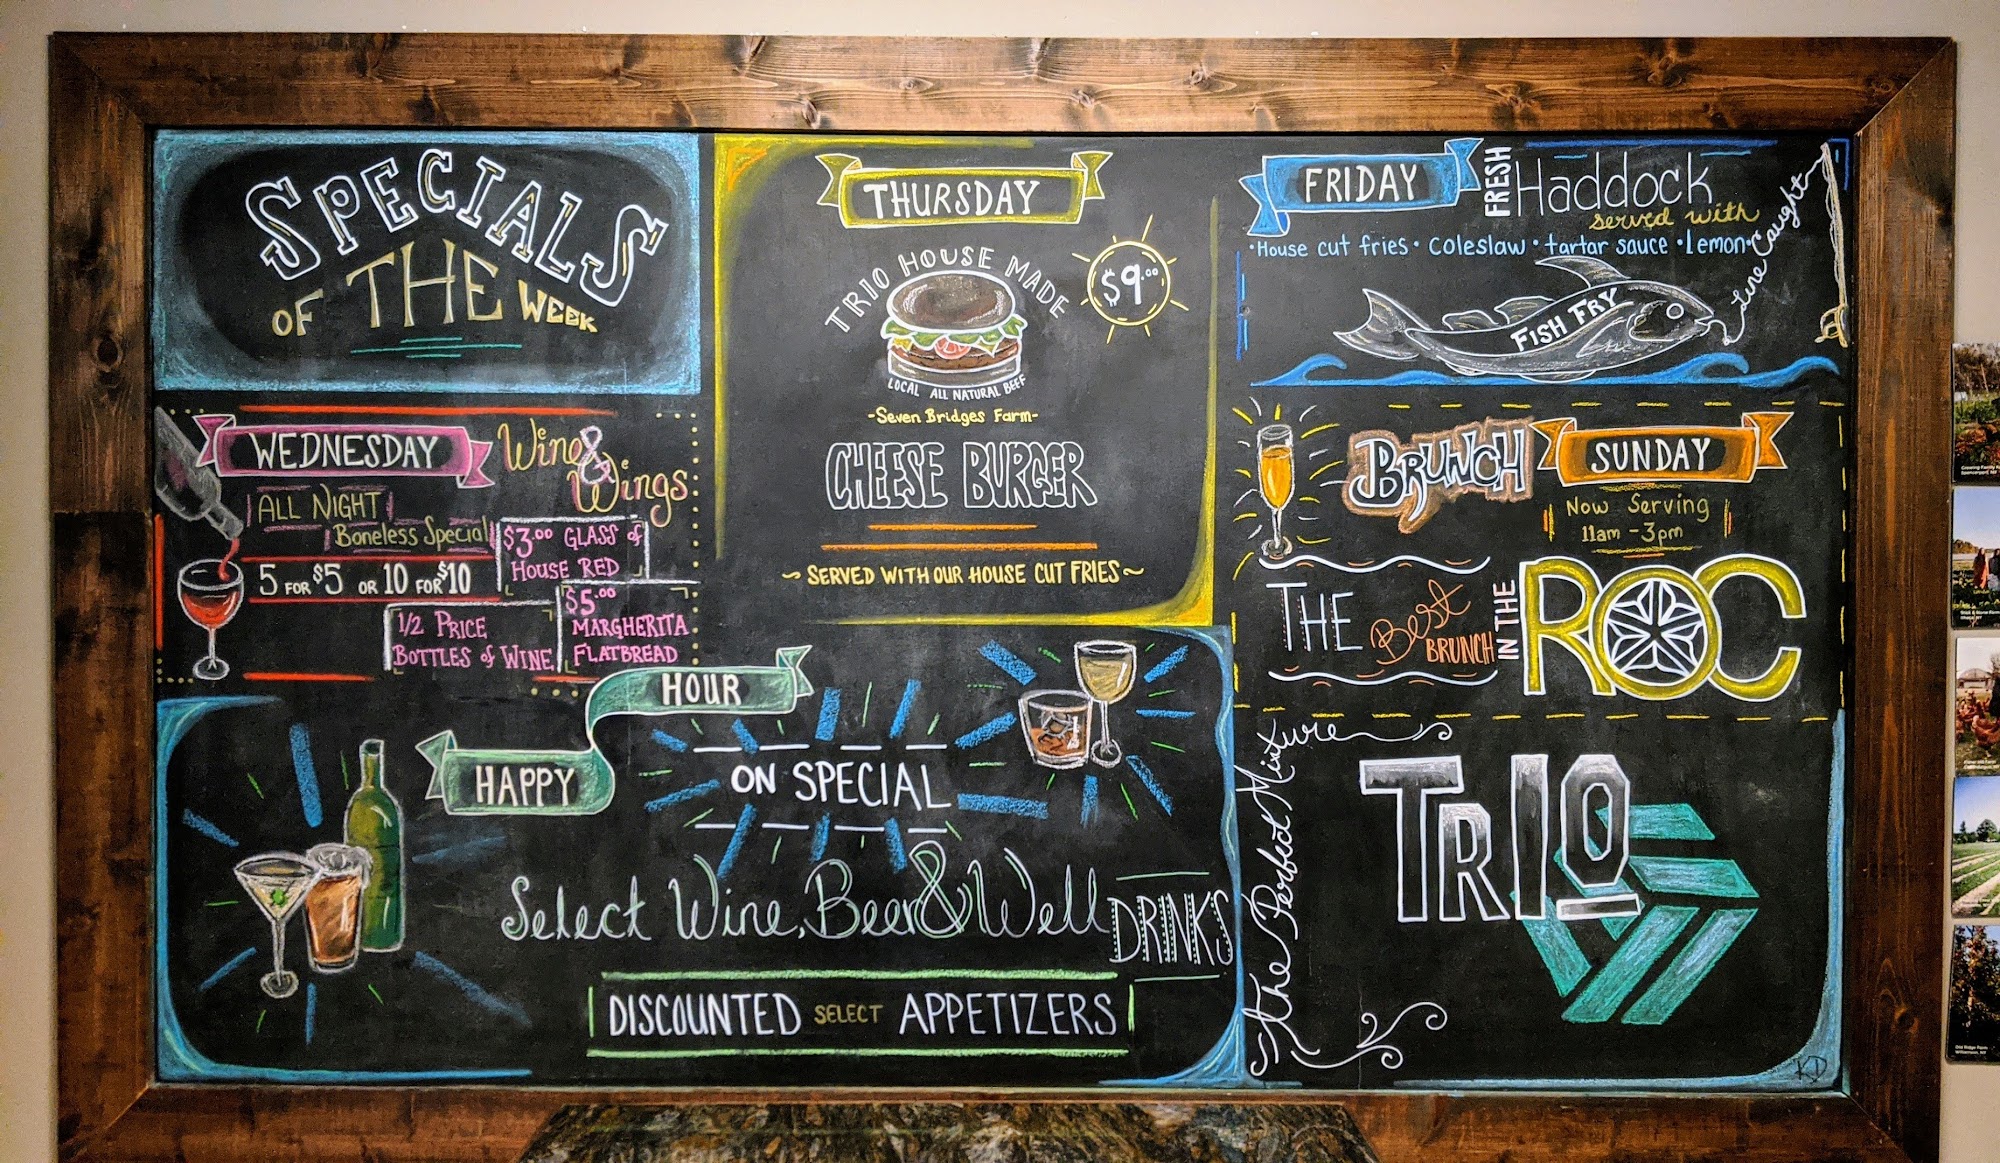 SPECIALS
OF THE WEEK
WEDNESDAY
Wine &
Wings
ALL NIGHT
Boneless Special
5 FOR $5 OR 10 FOR $10
$3.00 GLASS of
HOUSE RED
1/2 PRICE
BOTTLES of WINE
$5.00
MARGHERITA
FLATBREAD
THURSDAY
TRIO HOUSE MADE
$9.00
LOCAL ALL NATURAL BEEF
-Seven Bridges Farm-
CHEESE BURGER
~ SERVED WITH OUR HOUSE CUT FRIES ~
FRIDAY
FRESH
Haddock
served with
•House cut fries • Coleslaw • tartar sauce • Lemon•
Line Caught
FISH FRY
BRUNCH
SUNDAY
Now Serving
11am - 3pm
THE Best
BRUNCH
IN THE
ROC
HAPPY
HOUR
ON SPECIAL
Select Wine, Beer & Well DRINKS
DISCOUNTED SELECT APPETIZERS
The Perfect Mixture
TRIO
KD